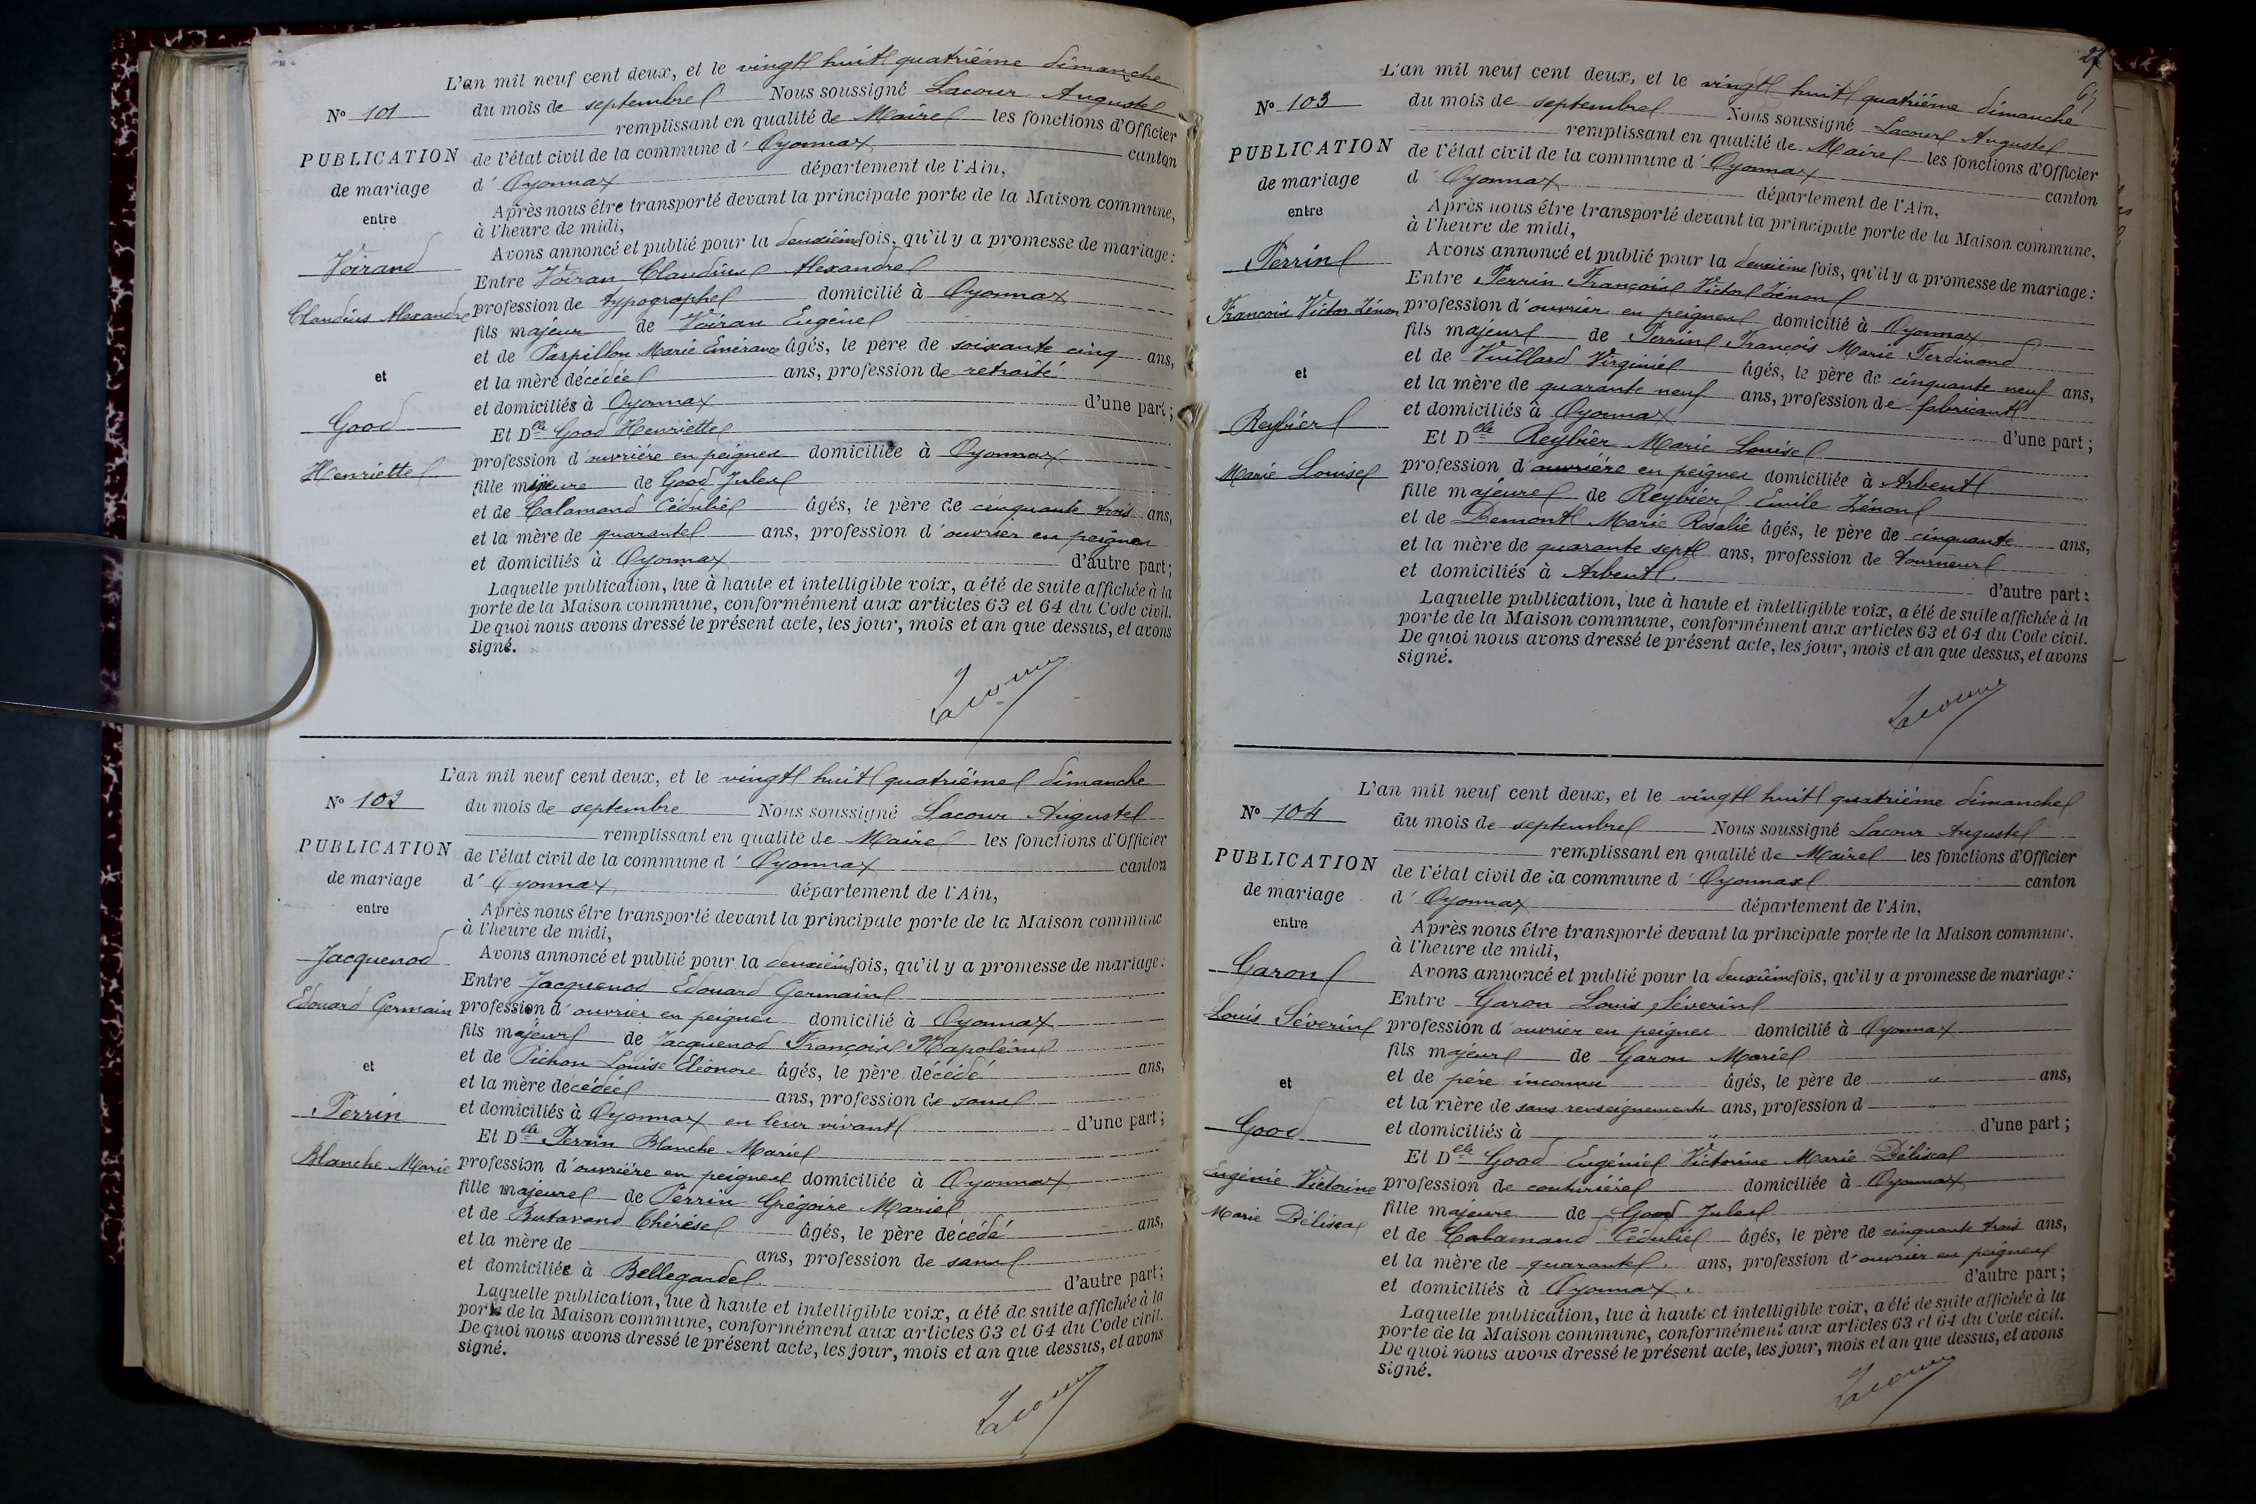 L'an mil neuf cent deux, et le vingt huit quatrième dimanche
N° 101
du mois de septembre Nous soussigné Lacour Auguste
remplissant en qualité de Maire les fonctions d'Officier
PUBLICATION
de l'état civil de la commune d' Oyonnax canton
de mariage
d' Oyonnax département de l'Ain,
entre
Après nous être transporté devant la principale porte de la Maison commune,
à l'heure de midi,
Avons annoncé et publié pour la deuxième fois, qu'il y a promesse de mariage :
Voirand
Entre Voiran Claudius Alexandre
Claudius Alexandre
profession de typographe domicilié à Oyonnax
fils majeur de Voiran Eugène
et de Parpillon Marie Emérance âgés, le père de soixante cinq ans,
et
et la mère décédée ans, profession de retraité
et domiciliés à Oyonnax d'une part ;
Good
Et Delle Good Henriette
profession d'ouvrière en peignes domiciliée à Oyonnax
Henriette
fille majeure de Good Jules
et de Calamand Cédulie âgés, le père de cinquante trois ans,
et la mère de quarante ans, profession d'ouvrier en peignes
et domiciliés à Oyonnax d'autre part ;
Laquelle publication, lue à haute et intelligible voix, a été de suite affichée à la
porte de la Maison commune, conformément aux articles 63 et 64 du Code civil.
De quoi nous avons dressé le présent acte, les jour, mois et an que dessus, et avons
signé.
Lacour
L'an mil neuf cent deux, et le vingt huit quatrième dimanche
N° 102
du mois de septembre Nous soussigné Lacour Auguste
remplissant en qualité de Maire les fonctions d'Officier
PUBLICATION
de l'état civil de la commune d' Oyonnax canton
de mariage
d' Oyonnax département de l'Ain,
entre
Après nous être transporté devant la principale porte de la Maison commune
à l'heure de midi,
Avons annoncé et publié pour la deuxième fois, qu'il y a promesse de mariage :
Jacquenod
Entre Jacquenod Edouard Germain
Edouard Germain
profession d'ouvrier en peignes domicilié à Oyonnax
fils majeur de Jacquenod François Napoléon
et de Pichon Louise Eléonore âgés, le père décédé ans,
et
et la mère décédée ans, profession de sans
et domiciliés à Oyonnax en leur vivant d'une part ;
Perrin
Et Delle Perrin Blanche Marie
Blanche Marie
profession d'ouvrière en peignes domiciliée à Oyonnax
fille majeure de Perrin Grégoire Marie
et de Butavand Thérèse âgés, le père décédé ans,
et la mère de ans, profession de sans
et domiciliée à Bellegarde d'autre part ;
Laquelle publication, lue à haute et intelligible voix, a été de suite affichée à la
porte de la Maison commune, conformément aux articles 63 et 64 du Code civil.
De quoi nous avons dressé le présent acte, les jour, mois et an que dessus, et avons
signé.
Lacour
27
L'an mil neuf cent deux, et le vingt huit quatrième dimanche
N° 103
du mois de septembre Nous soussigné Lacour Auguste
remplissant en qualité de Maire les fonctions d'Officier
PUBLICATION
de l'état civil de la commune d' Oyonnax canton
de mariage
d' Oyonnax département de l'Ain,
entre
Après nous être transporté devant la principale porte de la Maison commune,
à l'heure de midi,
Avons annoncé et publié pour la deuxième fois, qu'il y a promesse de mariage :
Perrin
Entre Perrin François Victor Zénon
François Victor Zénon
profession d'ouvrier en peignes domicilié à Oyonnax
fils majeur de Perrin François Marie Ferdinand
et de Vuillard Virginie âgés, le père de cinquante neuf ans,
et
et la mère de quarante neuf ans, profession de fabricants
et domiciliés à Oyonnax d'une part ;
Reybier
Et Delle Reybier Marie Louise
Marie Louise
profession d'ouvrière en peignes domiciliée à Arbent
fille majeure de Reybier Emile Zénon
et de Demont Marie Rosalie âgés, le père de cinquante ans,
et la mère de quarante sept ans, profession de tourneur
et domiciliés à Arbent. d'autre part :
Laquelle publication, lue à haute et intelligible voix, a été de suite affichée à la
porte de la Maison commune, conformément aux articles 63 et 64 du Code civil.
De quoi nous avons dressé le présent acte, les jour, mois et an que dessus, et avons
signé.
Lacour
L'an mil neuf cent deux, et le vingt huit quatrième dimanche
N° 104
du mois de septembre Nous soussigné Lacour Auguste
remplissant en qualité de Maire les fonctions d'Officier
PUBLICATION
de l'état civil de la commune d' Oyonnax canton
de mariage
d' Oyonnax département de l'Ain,
entre
Après nous être transporté devant la principale porte de la Maison commune,
à l'heure de midi,
Avons annoncé et publié pour la deuxième fois, qu'il y a promesse de mariage :
Garon
Entre Garon Louis Séverin
Louis Séverin
profession d'ouvrier en peignes domicilié à Oyonnax
fils majeur de Garon Marie
et de père inconnu âgés, le père de " ans,
et
et la mère de sans renseignements ans, profession d "
et domiciliés à " d'une part ;
Good
Et Delle Good Eugénie Victorine Marie Déliscal
Eugénie Victorine
profession de couturière domiciliée à Oyonnax
Marie Déliscal
fille majeure de Good Jules
et de Calamand Cédulie âgés, le père de cinquante trois ans,
et la mère de quarante ans, profession d'ouvrier en peignes
et domiciliés à Oyonnax. d'autre part ;
Laquelle publication, lue à haute et intelligible voix, a été de suite affichée à la
porte de la Maison commune, conformément aux articles 63 et 64 du Code civil.
De quoi nous avons dressé le présent acte, les jour, mois et an que dessus, et avons
signé.
Lacour